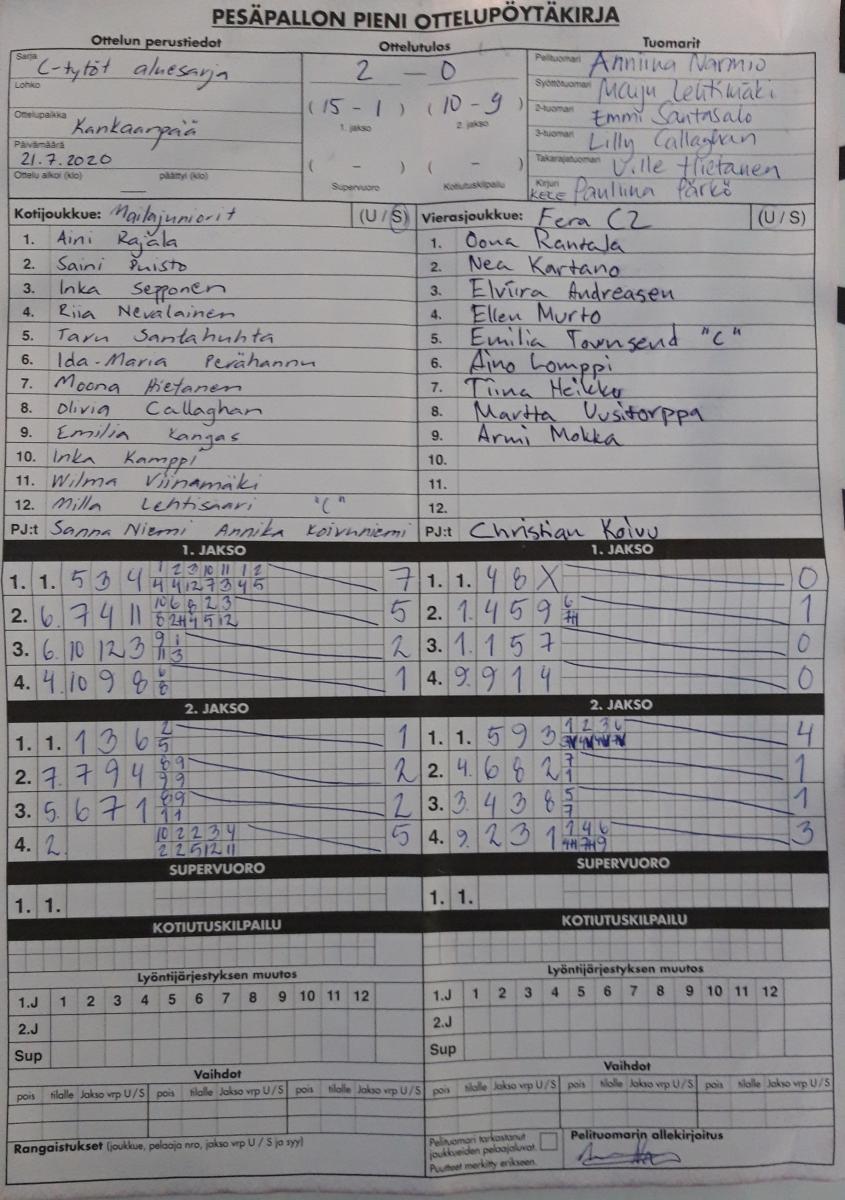 PESÄPALLON PIENI OTTELUPÖYTÄKIRJA
Ottelun perustiedot
Sarja C-tytöt aluesarja
Lohko
Ottelupaikka Kankaanpää
Päivämäärä 21.7.2020
Ottelu alkoi (klo) — päättyi (klo)
Ottelutulos
2 — 0
(15 - 1) (10 - 9)
1. jakso 2. jakso
( - ) ( - )
Supervuoro Kotiutuskilpailu
Tuomarit
Pelituomari Anniina Narmio
Syöttötuomari Maiju Lehtimäki
2-tuomari Emmi Santasalo
3-tuomari Lilly Callaghan
Takarajatuomari Ville Hietanen
Kirjuri Pauliina Pärkö
Kotijoukkue: Mailajuniorit (U / S)
1. Aini Rajala
2. Saini Puisto
3. Inka Sepponen
4. Riia Nevalainen
5. Taru Santahuhta
6. Ida-Maria Perähannu
7. Moona Hietanen
8. Olivia Callaghan
9. Emilia Kangas
10. Inka Kamppi
11. Wilma Viinamäki
12. Milla Lehtisaari "C"
PJ:t Sanna Niemi Annika Koivuniemi
Vierasjoukkue: Fera C2 (U / S)
1. Oona Rantala
2. Nea Kartano
3. Elviira Andreasen
4. Ellen Murto
5. Emilia Townsend "C"
6. Aino Lomppi
7. Tiina Heikku
8. Martta Uusitorppa
9. Armi Mokka
10.
11.
12.
PJ:t Christian Koivu
1. JAKSO
1. 1. 5 3 4 1 2 3 10 11 1 2 7
4 4 12 7 3 4 5
2. 6. 7 4 11 10 6 8 2 3 5
3. 6. 10 12 3 9 1 2
11 3
4. 4. 10 9 8 6 1
8
1. JAKSO
1. 1. 4 8 X 0
2. 1. 4 5 9 6 1
3. 1. 1 5 7 0
4. 9. 9 1 4 0
2. JAKSO
1. 1. 1 3 6 2 1
5
2. 7. 7 9 4 8 9 2
9 9
3. 5. 6 7 1 8 9 2
1 1
4. 2. 10 2 2 3 4 5
2 2 5 12 11
2. JAKSO
1. 1. 5 9 3 1 2 3 6 4
2. 4. 6 8 2 7 1
1
3. 3. 4 3 8 5 1
7
4. 9. 2 3 1 1 4 6 3
SUPERVUORO
1. 1.
SUPERVUORO
1. 1.
KOTIUTUSKILPAILU
KOTIUTUSKILPAILU
Lyöntijärjestyksen muutos
1.J 1 2 3 4 5 6 7 8 9 10 11 12
2.J
Sup
Lyöntijärjestyksen muutos
1.J 1 2 3 4 5 6 7 8 9 10 11 12
2.J
Sup
Vaihdot
pois tilalle Jakso vrp U / S pois tilalle Jakso vrp U / S pois tilalle Jakso vrp U / S
Vaihdot
pois tilalle Jakso vrp U / S pois tilalle Jakso vrp U / S pois tilalle Jakso vrp U / S
Rangaistukset (joukkue, pelaaja nro, jakso vrp U / S ja syy)
Pelituomari tarkastanut
joukkueiden pelaajaluvat.
Puutteet merkitty erikseen.
Pelituomarin allekirjoitus